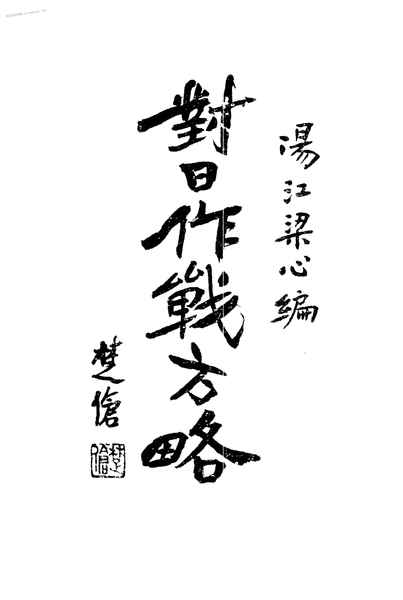 湯江梁心編
對日作戰方略
楚傖
楚傖